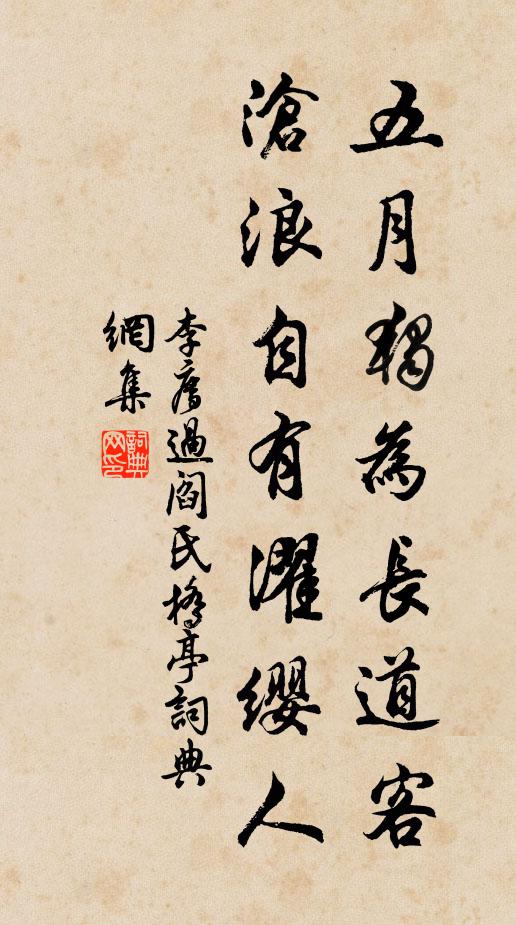 五月獨為長道客
滄浪自有濯纓人
李廌過閻氏橋亭詞典
網集
詞典
网印